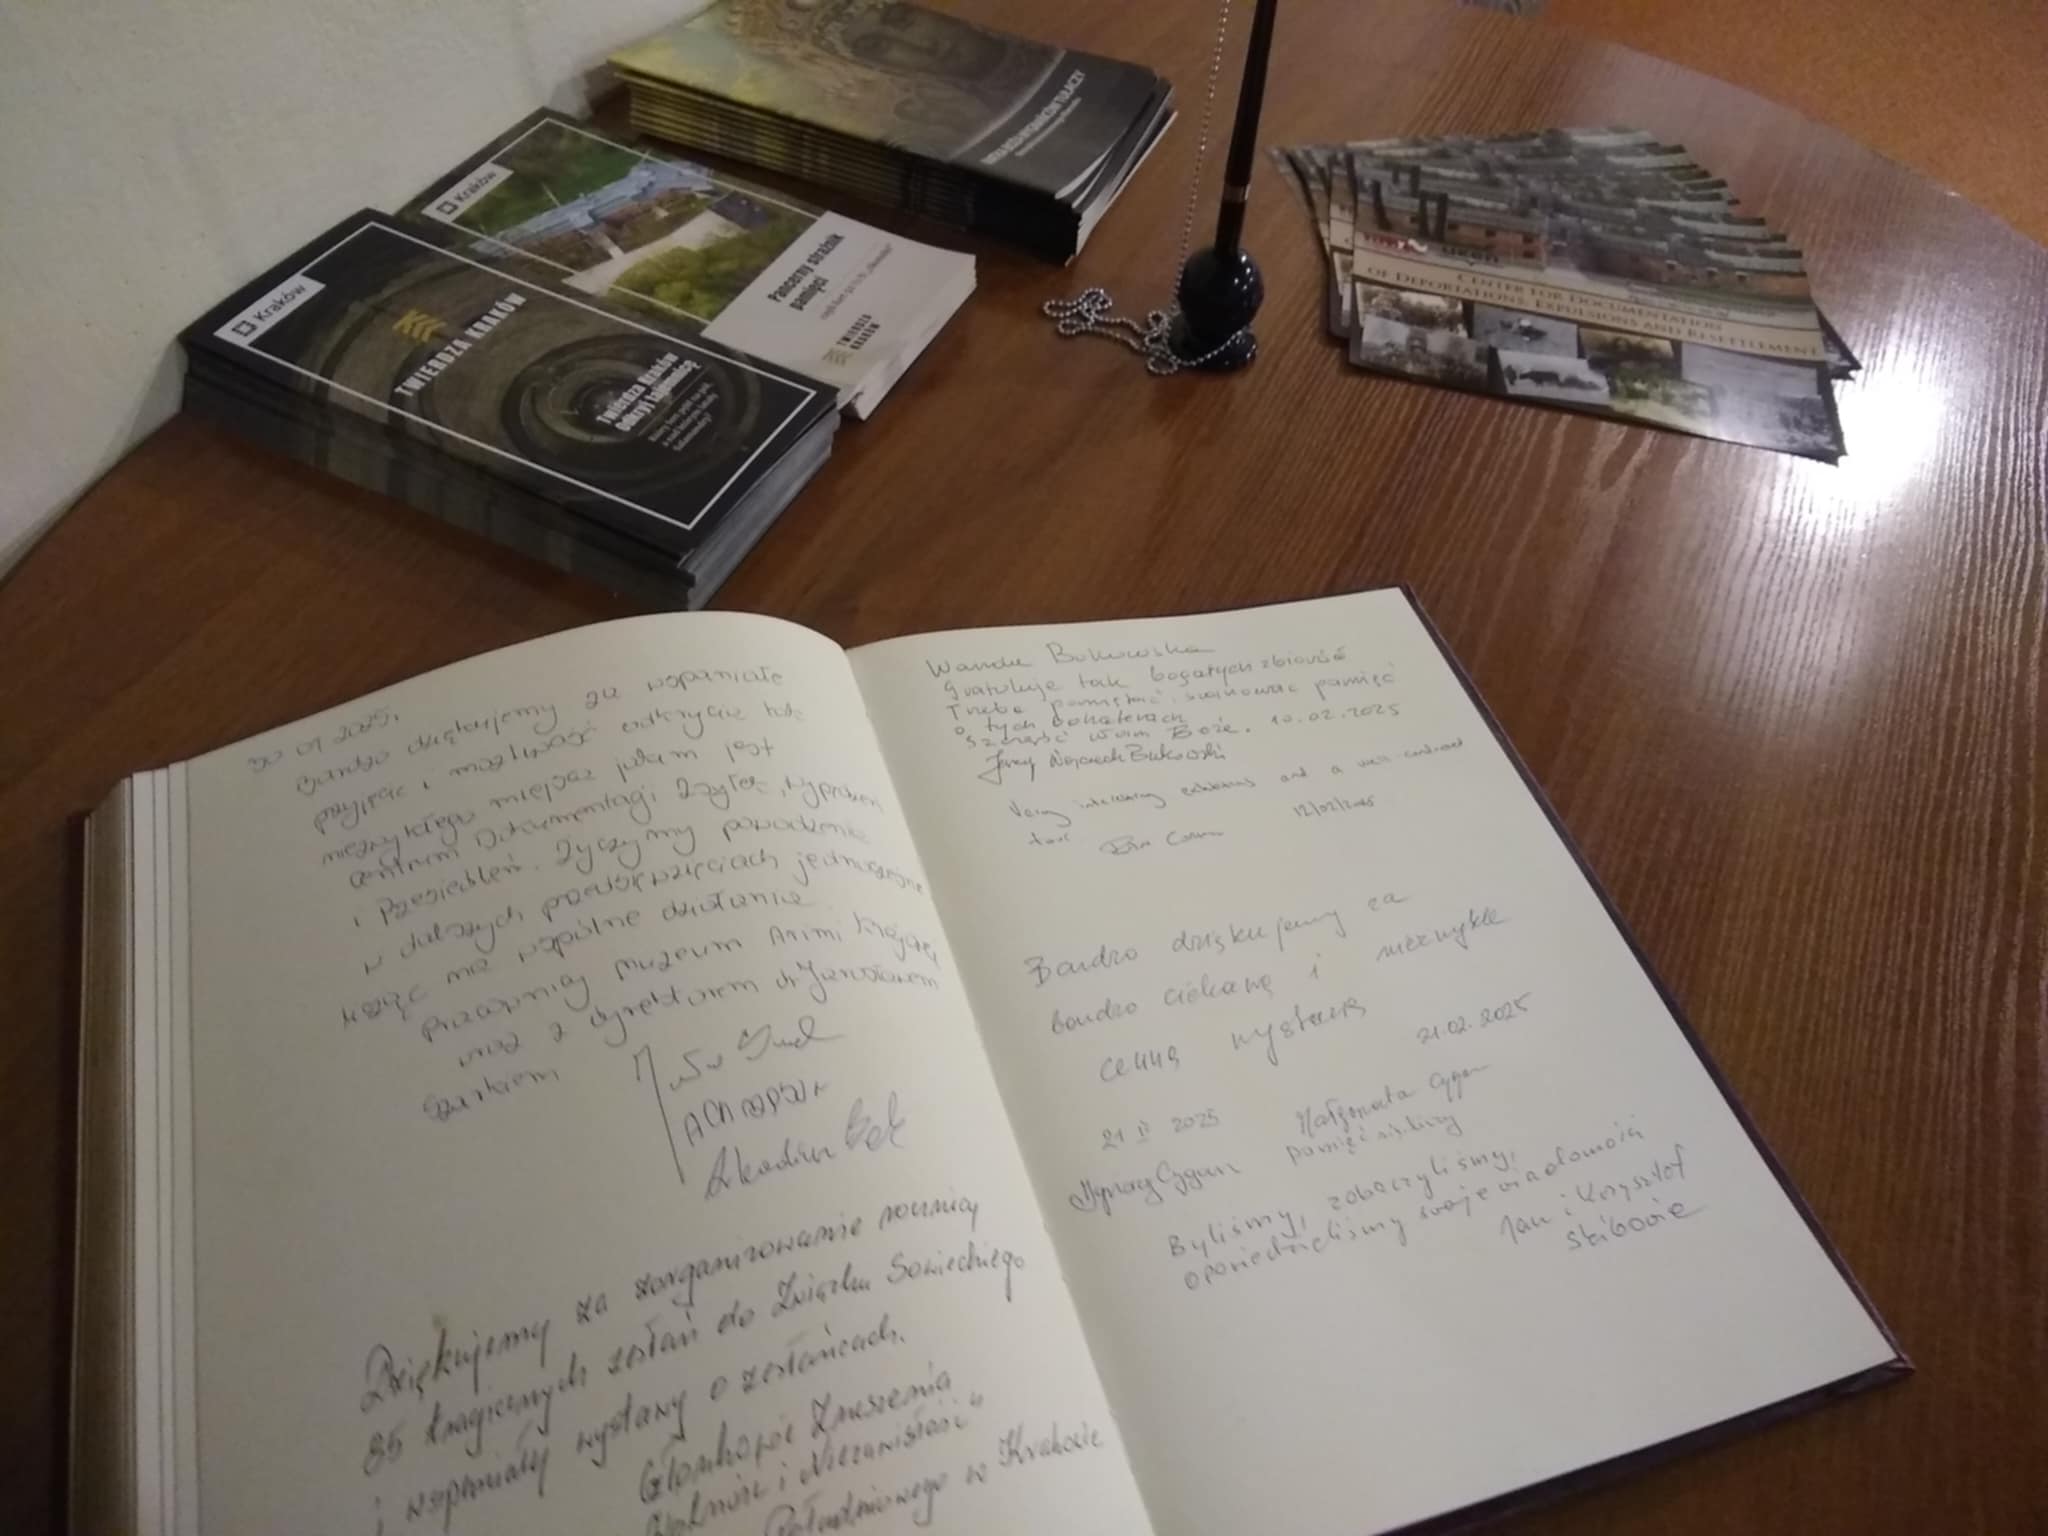 MATKA BOŻA WYGNAŃCÓW TUŁACZY
Kraków
Pancerny strażnik
pamięci
TWIERDZA
KRAKÓW
Kraków
TWIERDZA KRAKÓW
Twierdza Kraków
odkryj tajemnicę
CENTER FOR DOCUMENTATION
OF DEPORTATIONS, EXPULSIONS AND RESETTLEMENT
30 01 2025r
Bardzo dziękujemy za wspaniałe
przyjęcie i możliwość odkrycia tak
niezwykłego miejsca jakim jest
centrum Dokumentacji Zsyłek, Wypędzeń
i Przesiedleń. Życzymy powodzenia
w dalszych przedsięwzięciach jednocześnie
licząc na wspólne działania
pracownicy muzeum Armii Krajowej
wraz z dyrektorem dr Jarosławem
Szarkiem
Arkadiusz
Dziękujemy za zorganizowanie rocznicy
85 tragicznych zesłań do Związku Sowieckiego
i wspaniałej wystawy o zesłańcach.
Członkowie Zrzeszenia
Wolność i Niezawisłość"
Południowego w Krakowie
Wanda Bukowska
Gratuluję tak bogatych zbiorów
Trzeba pamiętać i szanować pamięć
o tych bohaterach
Szczęść Wam Boże. 10.02.2025
Jerzy Wojciech Bukowski
Very interesting exhibitions and a well-curated
tour. 12/02/2025
Bardzo dziękujemy za
bardzo ciekawą i niezwykle
cenną wystawę
21.02.2025
21 II 2025 Małgorzata Cygan
Cygan
Byliśmy, zobaczyliśmy,
Jan i Krzysztof
Skibowie